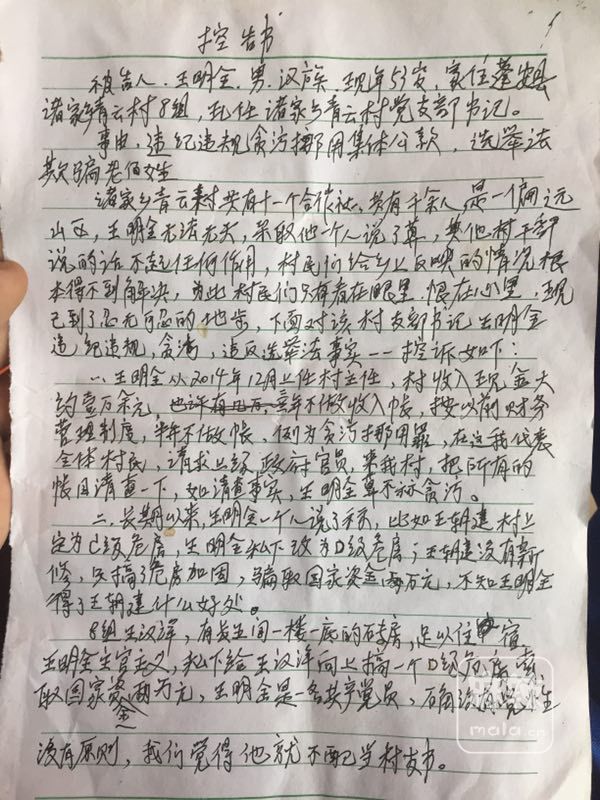 控告书
被告人.王明金.男.汉族.现年53岁,家住蓬安县
诸家乡青云村8组,现任诸家乡青云村党支部书记。
事由,违纪违规贪污挪用集体公款,选举法
欺骗老百姓
诸家乡青云村共有十一个合作社,共有千余人是一偏远
山区,王明金无法无天,采取他一个人说了算,其他村干部
说的话不起任何作用,村民们给乡上反映的情况根
本得不到解决,为此村民们只有看在眼里恨在心里,现
已到了忍无可忍的地步,下面对该村支部书记王明金
违纪违规,贪污,违反选举法事实一一控诉如下:
一.王明金从2014年12月上任村主任,村收入现金大
约壹万余元 年不做收入帐,按以前财务
管理制度,半年不做帐,例为贪污挪用罪,在这我代表
全体村民,请求上级政府官员,来我村,把所有的
帐目清查一下,如清查事实,王明金算不算贪污。
二.长期以来,王明金一个人说了算,比如王朝建村上
定为C级危房,王明金私下改为D级危房;王朝建没有新
修,只搞了危房加固,骗取国家资金两万元,不知王明金
得了王朝建什么好处。
8组王汉洋,有长五间一楼一底的砖房,足以住宿
王明金主官主义,私下给王汉洋向上搞一个D级危房,套
取国家资金两万元,王明金是一名共产党员,确没有党性
没有原则,我们觉得他就不配当村支书。
mala.cn